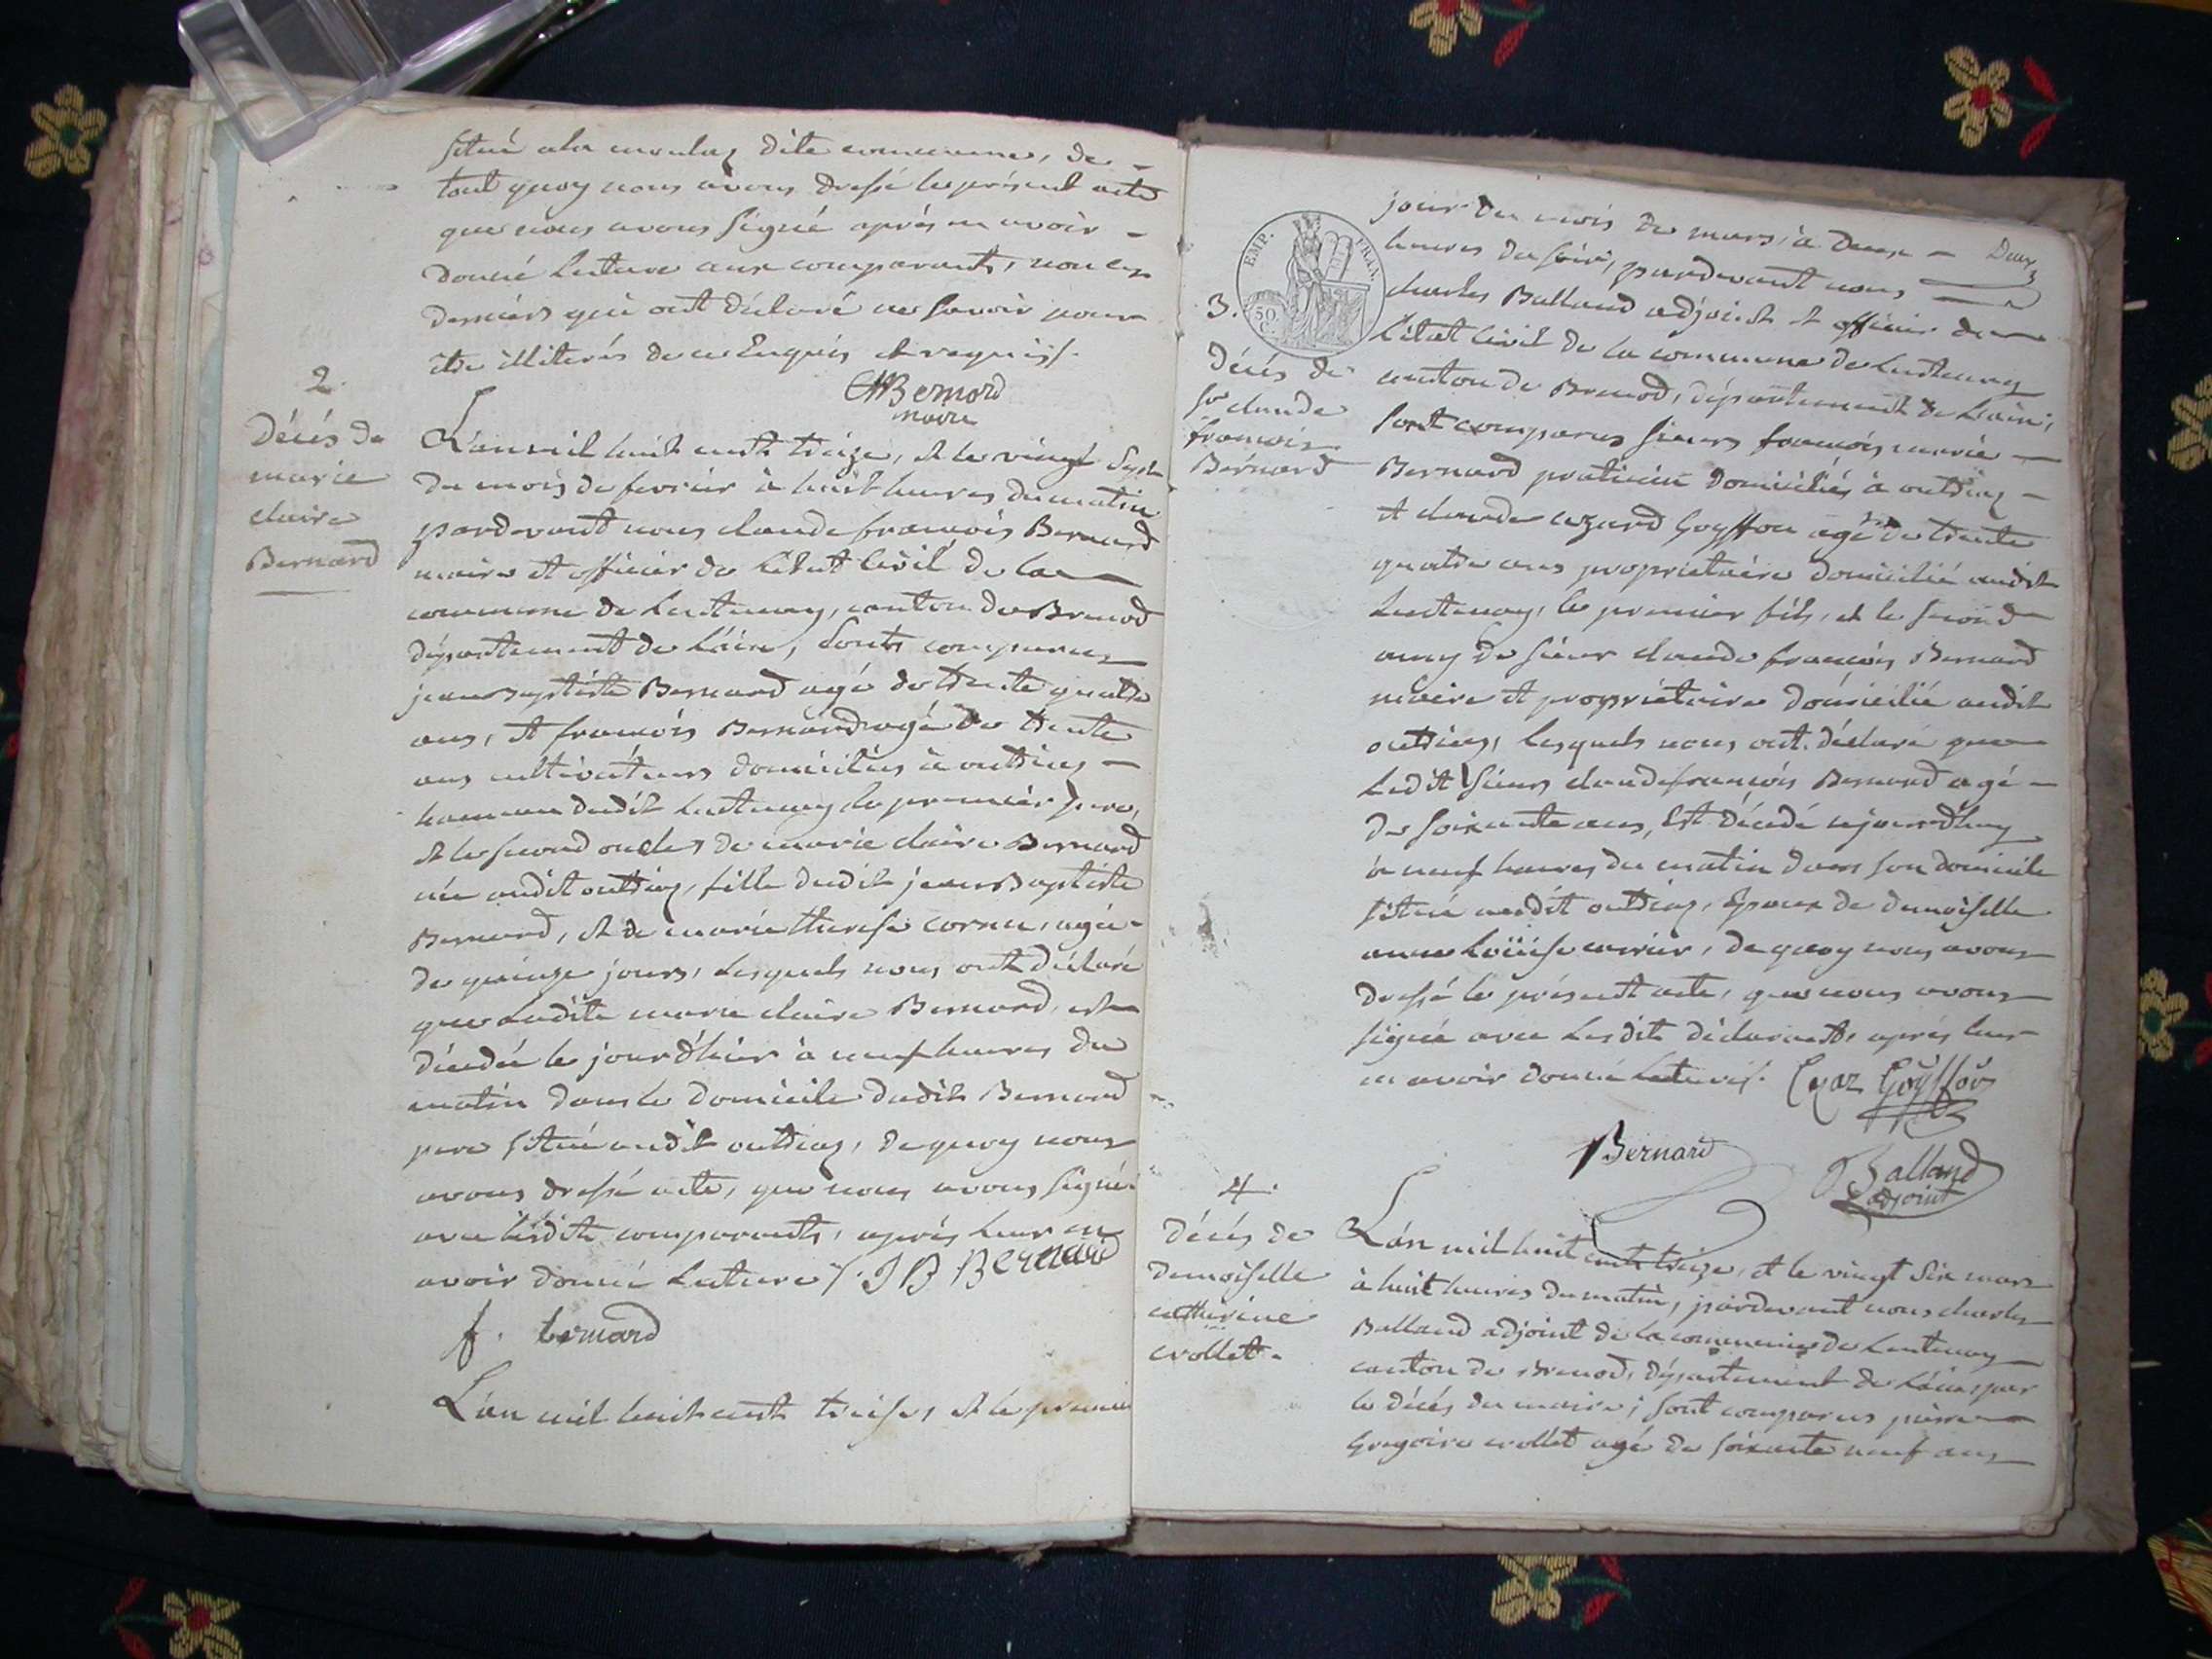 situé a la montag dite commune, de
tout quoy nous avons dressé le présent acte
que nous avons signé après en avoir
donné lecture aux comparants, non ces
derniers qui ont déclaré ne savoir pour
etre illiterés de ce Enquis et requis /.
Bernard
maire
2.
Décés de
marie
claire
Bernard
L'an mil huit cents treize, et le vingt Sept
du mois de fevrier à huit heures du matin
pardevant nous claude françois Bernard
maire et officier de L'état Civil de la
commune de Lentenay, canton de Brenod
département de L'ain, sonts comparus
jean Baptiste Bernard agé de trente quatre
ans, et françois Bernard agé de trente
ans cultivateurs domiciliés à outriaz
hameau dudit Lentenay le premier pere,
et le second oncle de marie claire Bernard
née audit outriaz, fille dudit jean Baptiste
Bernard, et de marie therese cornu, agée
de quinze jours, Lesquels nous ont déclaré
que Ladite marie claire Bernard, est
décédée le jour d'hier à neuf heures du
matin dans le domicile dudit Bernard
pere situé audit outriaz, de quoy nous
avons dressé acte, que nous avons signé
avec lesdits comparants, après leur en
avoir donné Lecture /. J B Bernard
f. bernard
L'an mil huit cent treise, et le premier
Deux
3.
EMP. FRAN.
50 C.
Décés de
sr claude
françois
Bernard
jour du mois de mars, à deux
heures du soir, pardevant nous
charles Balland adjoint et officier de
L'état Civil de la commune de Lentenay
canton de Brenod, département de L'ain,
sont comparus sieurs françois marie
Bernard praticien domicilié à outriaz
et claude cezard Goyffon agé de trente
quatre ans propriétaire domicilié audit
Lentenay, le premier fils, et le second
amy de sieur claude françois Bernard
maire et propriétaire domicilié audit
outriaz, Lesquels nous ont déclaré que
Ledit sieur claude françois Bernard agé
de soixante ans, Est décédé ajourdhuy
à neuf heures du matin dans son domicile
situé audit outriaz, Epoux de demoiselle
anne Loüise carrier, de quoy nous avons
dressé le présent acte, que nous avons
signé avec Lesdit déclarants, après leur
en avoir donné Lecture /. Cezar Goyffon
Bernard
Balland
adjoint
4.
Décés de
demoiselle
catherine
crollet.
L'an mil huit cents treize, et le vingt Six mars
à huit heures du matin, pardevant nous charles
Balland adjoint de la commune de Lentenay
canton de Brenod, département de L'ain, par
le décés du maire; sont comparus pierre
Gregoire crollet agé de soixante neuf ans